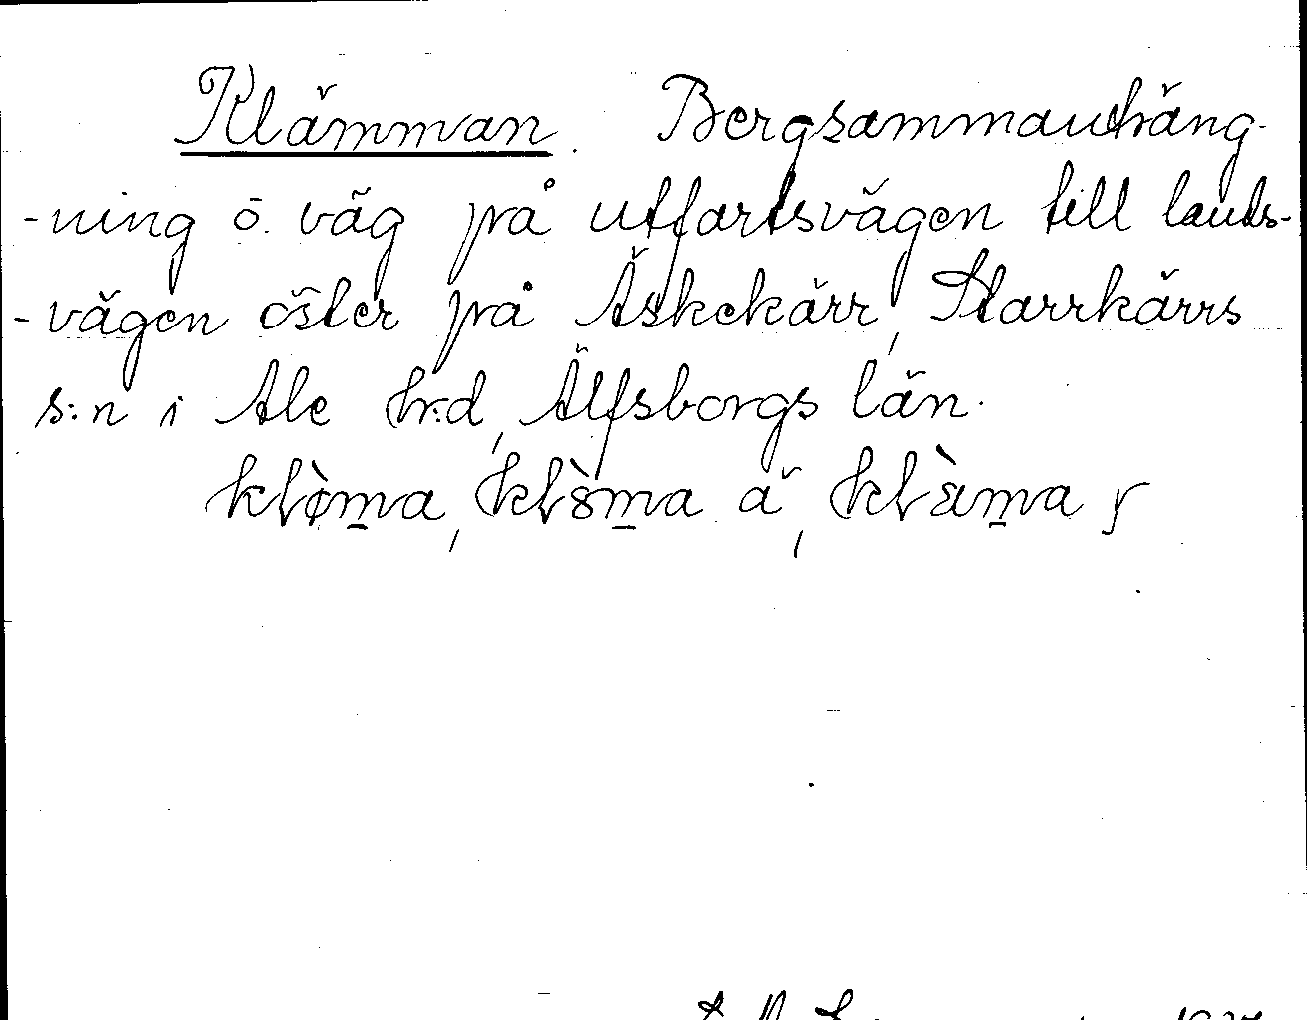 Klämman. Bergsammanträng-
-ning ö. väg på utfartsvägen till lands-
-vägen öster på Äskekärr, Starrkärrs
s:n i Ale hr:d, Älfsborgs län.
klø̀m̲a, klö̀m̲a ä, klàm̲a ʃ